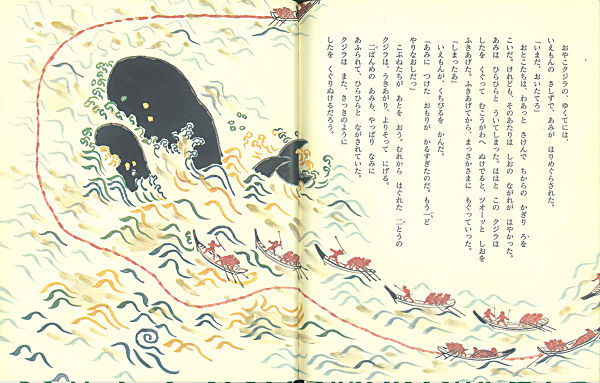 おやこクジラの ゆくてには、
いえもんの さしずで、あみが はりめぐらされた。
「いまだ、おいたてろ」
おとこたちは、わあっと さけんで ちからの かぎり ろを
こいだ。けれども、そのあたりは しおの ながれが はやかった。
あみは ひらひらと ういてしまった。ははと この クジラは
したを くぐって むこうがわへ ぬけでると、ツオーッと しおを
ふきあげた。ふきあげてから、まっさかさまに もぐっていった。
「しまったあ」
いえもんが、くちびるを かんだ。
「あみに つけた おもりが かるすぎたのだ。もう一ど
やりなおしだっ」
こぶねたちが あとを おう。むれから はぐれた 二とうの
クジラは、うきあがり、よりそって にげる。
二ばんめの あみも、やっぱり なみに
あふられて、ひらひらと ながされていた。
クジラは また、さっきのように
したを くぐりぬけるだろう。